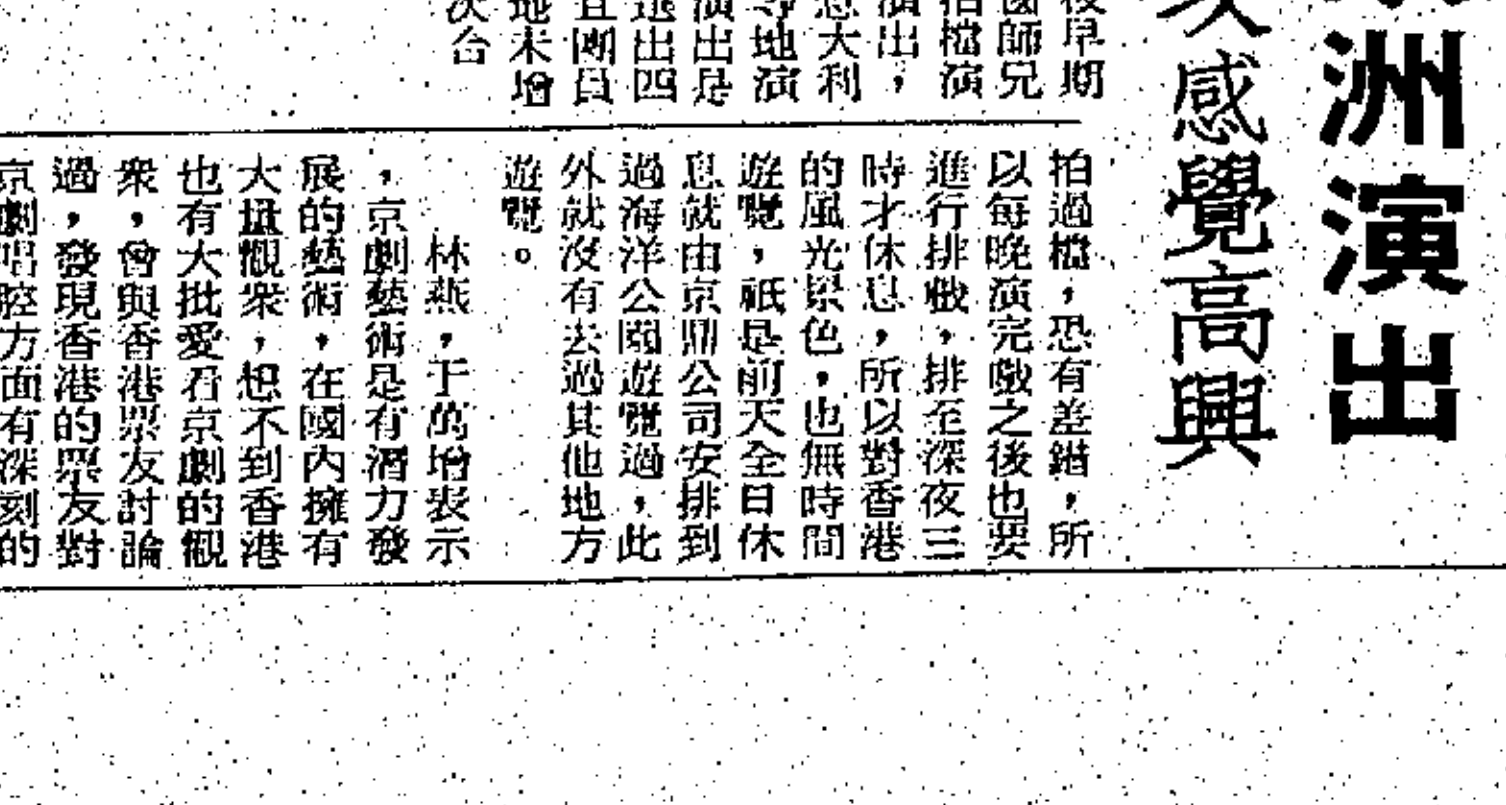 洲演出
次感覺高興
後早期
國師兄
拍檔演
演出,
意大利
等地演
演出是
退出四
且團員
地未增
次台
拍過檔,恐有差錯,所
以每晚演完戲之後也要
進行排戲,排至深夜三
時才休息,所以對香港
的風光景色,也無時間
遊覽,祇是前天全日休
息就由京鼎公司安排到
過海洋公園遊覽過,此
外就沒有去過其他地方
遊覽。
林燕,于萬增表示
,京劇藝術是有潛力發
展的藝術,在國內擁有
大量觀衆,想不到香港
也有大批愛看京劇的觀
衆,曾與香港票友討論
過,發現香港的票友對
京劇唱腔方面有深刻的